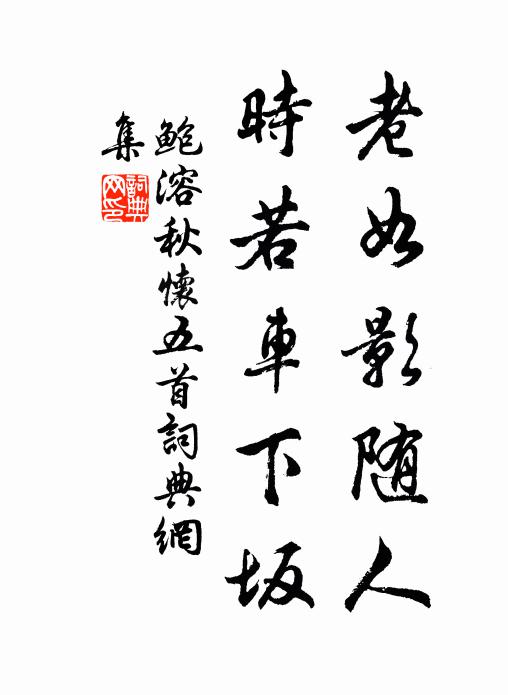 老如影随人
時若車下坂
鮑溶秋懷五首詞典網
集
詞典
网印